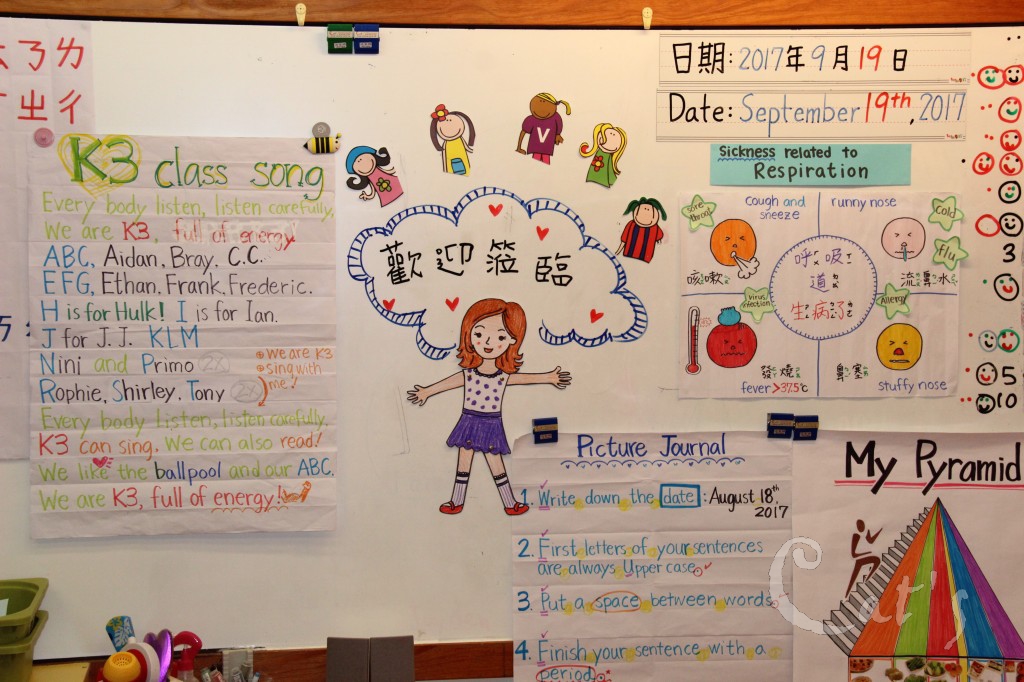 ㄋ ㄌ
ㄓ ㄔ
K3 class song
Every body listen, listen carefully,
We are K3, full of energy!
ABC, Aidan, Bray, C.C.
EFG, Ethan, Frank, Frederic.
H is for Hulk! I is for Ian.
J for J.J. KLM
Nini and Primo 2X
Rophie, Shirley, Tony 2X
we are K3
sing with
me!
Every body listen, listen carefully.
K3 can sing. We can also read!
We like the ballpool and our ABC.
We are K3, full of energy!
V
歡迎蒞臨
日期: 2017年9月19日
Date: September 19th, 2017
Sickness related to
Respiration
sore throat
cough and sneeze
咳嗽
runny nose
cold
flu
流鼻水
呼吸
道
生病了
virus infection
Allergy
發燒
fever >37.5℃
鼻塞
stuffy nose
3
5
10
Picture Journal
1. Write down the date : August 18th
2017
2. First letters of your sentences
are always Upper case.
3. Put a space between words.
4. Finish your sentence with a
period
My Pyramid
Cat's